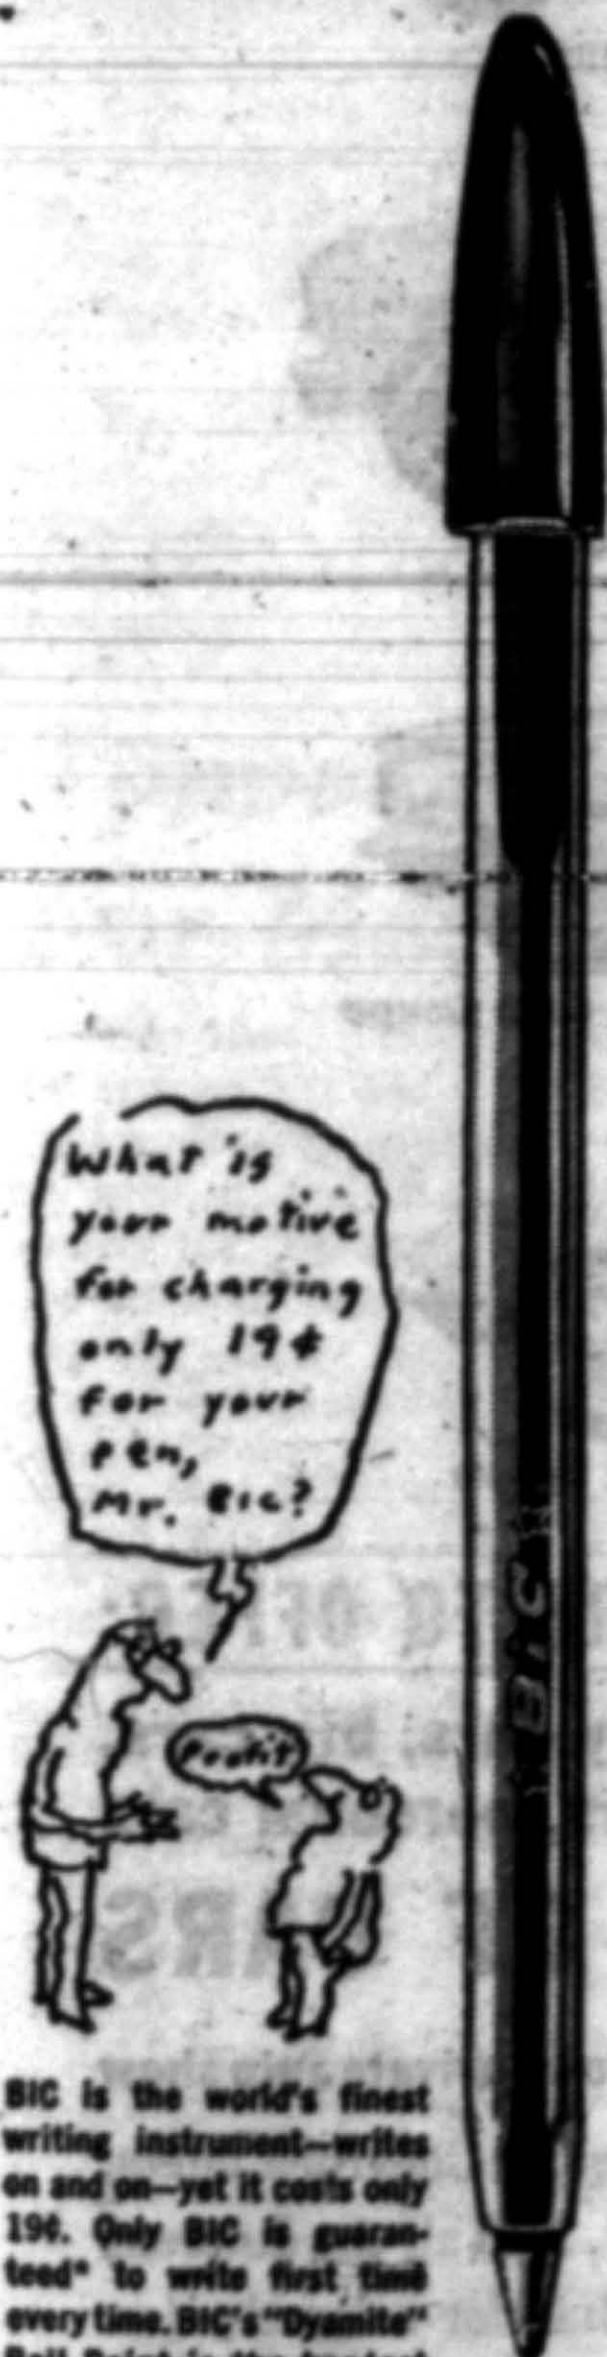 What is
your motive
for charging
only 19¢
for your
pen,
Mr. Bic?
Profit
BiC
BIC is the world's finest
writing instrument—writes
on and on—yet it costs only
19¢. Only BIC is guaran-
teed* to write first time
every time. BIC's "Dyamite"
Ball Point is the